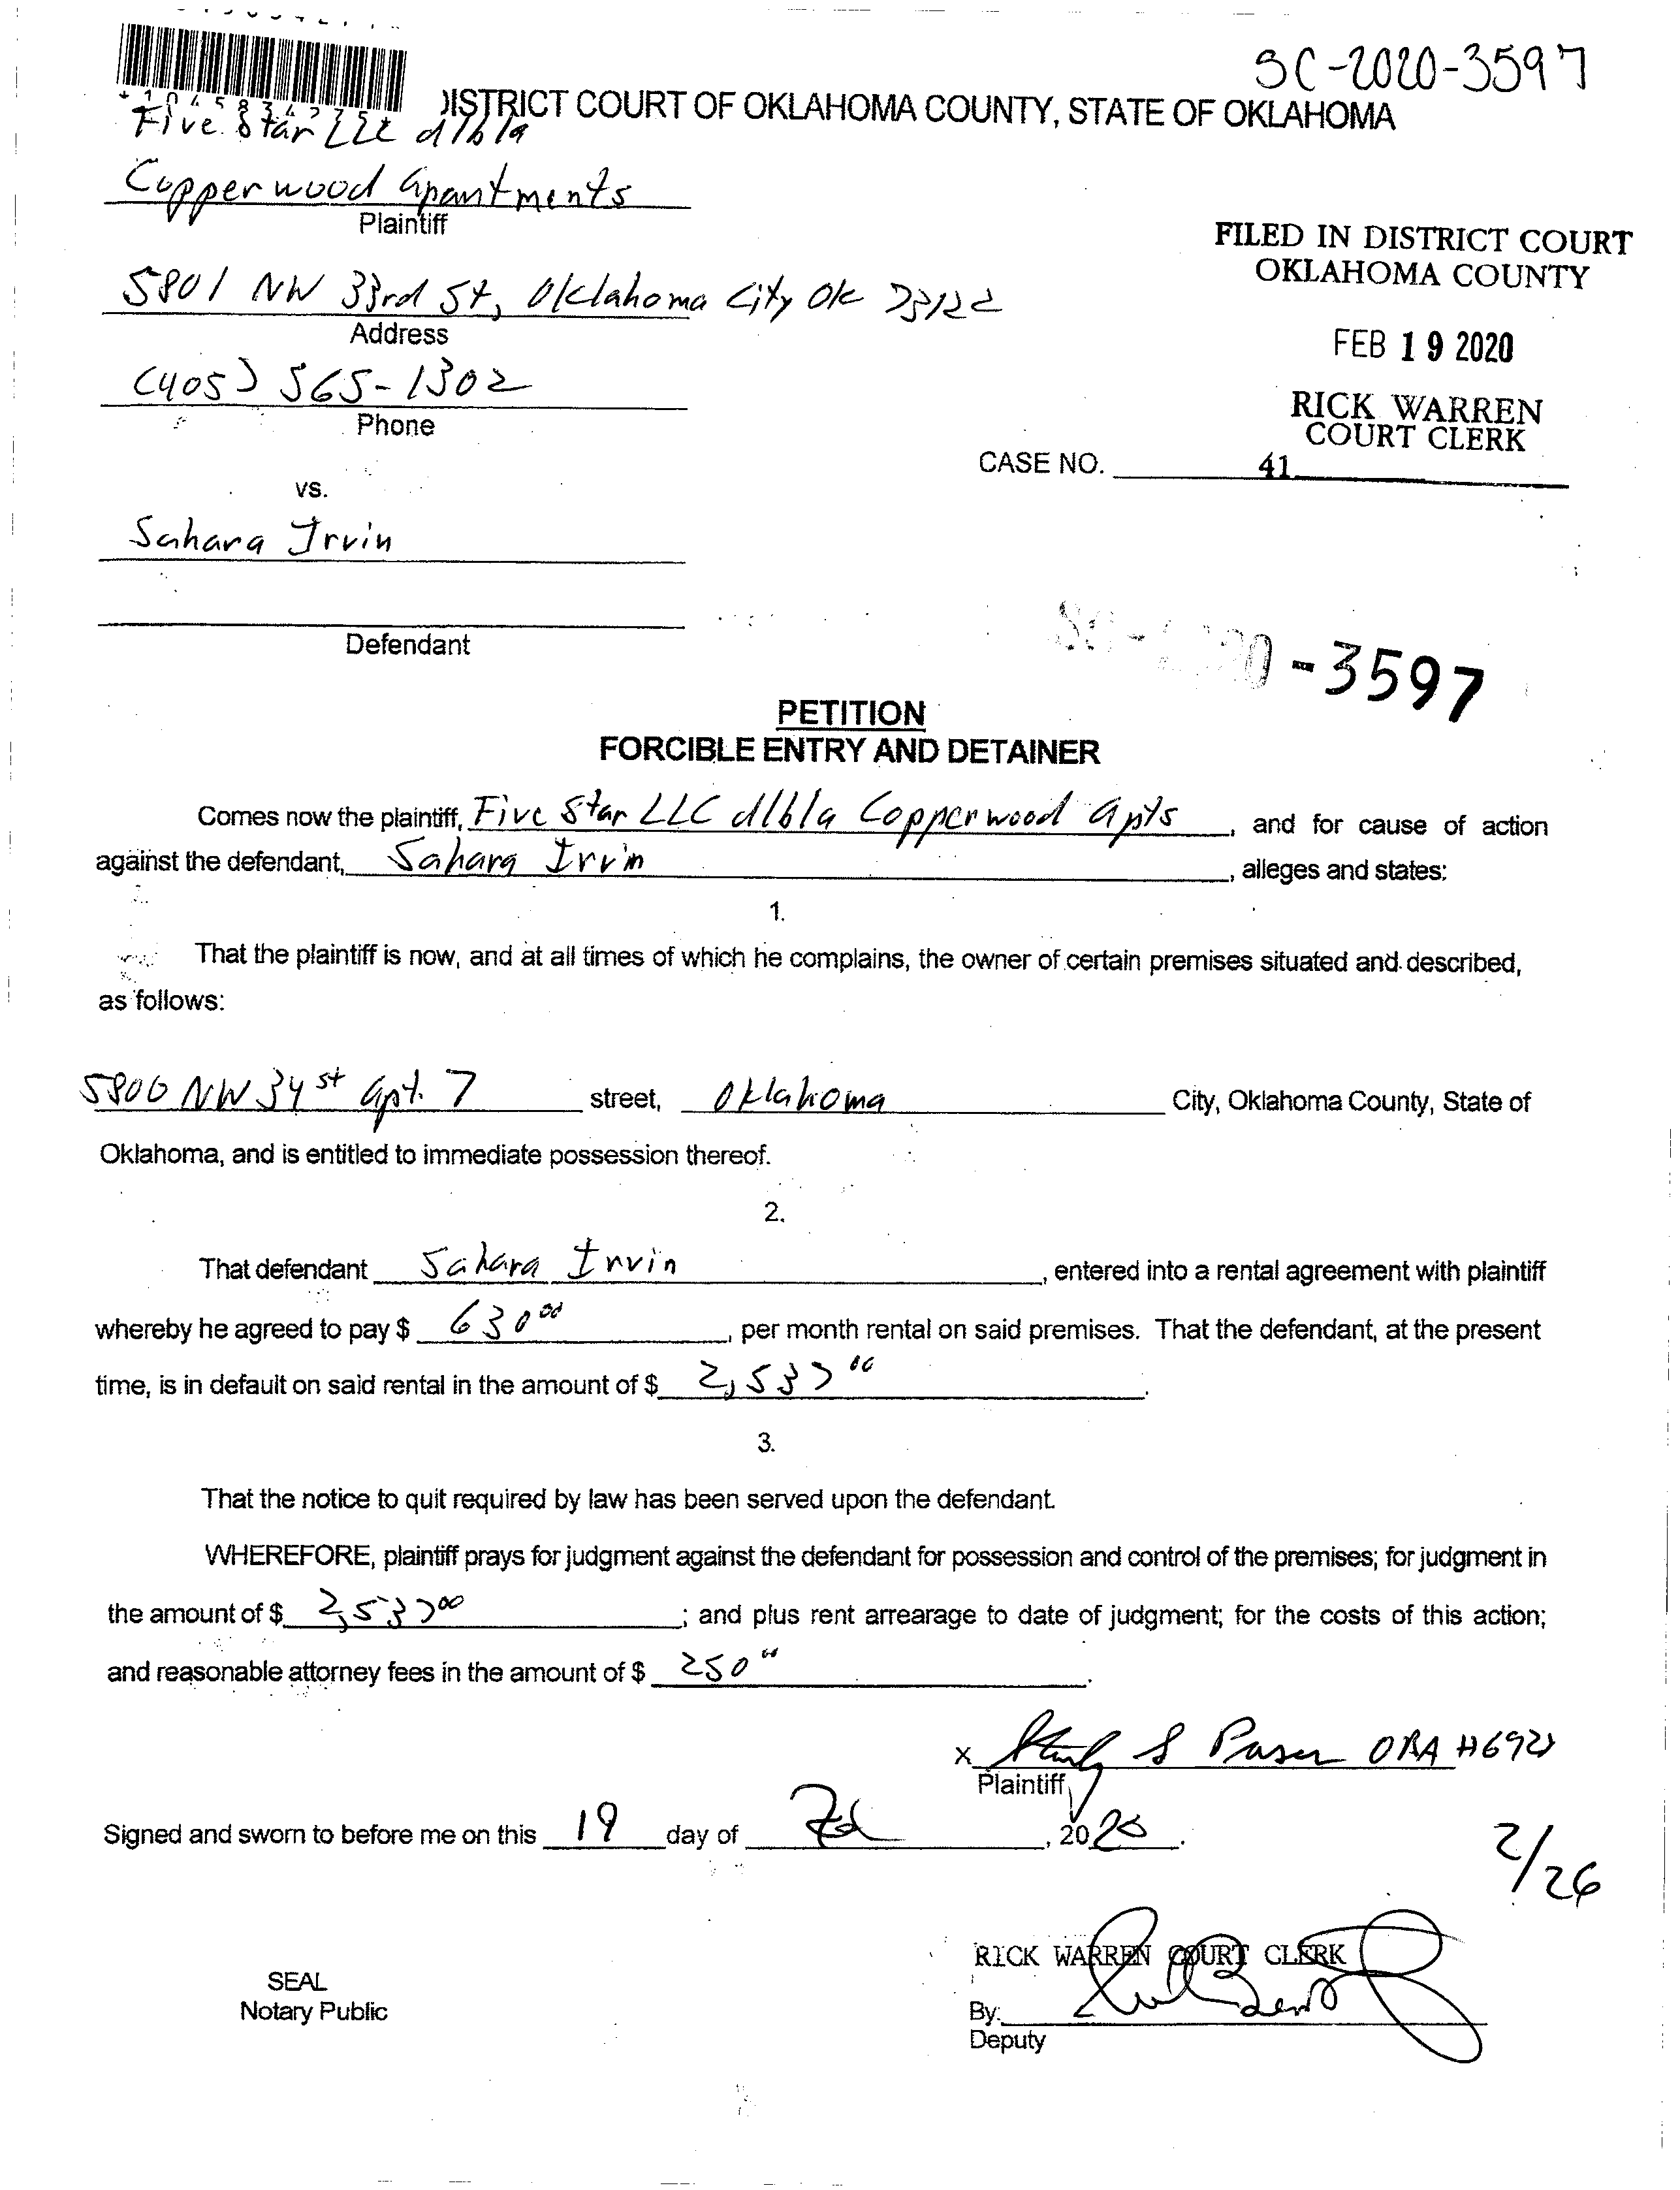 SC-2020-3597
DISTRICT COURT OF OKLAHOMA COUNTY, STATE OF OKLAHOMA
Five Star LLC d/b/a
Copperwood Apartments
Plaintiff
5801 NW 33rd St, Oklahoma City OK 73122
Address
(405) 565-1302
Phone
FILED IN DISTRICT COURT
OKLAHOMA COUNTY
FEB 19 2020
RICK WARREN
COURT CLERK
CASE NO. 41
vs.
Sahara Irvin
Defendant
-3597
PETITION
FORCIBLE ENTRY AND DETAINER
Comes now the plaintiff, Five Star LLC d/b/a Copperwood Apts, and for cause of action
against the defendant, Sahara Irvin, alleges and states:
1.
That the plaintiff is now, and at all times of which he complains, the owner of certain premises situated and described,
as follows:
5800 NW 34st Apt. 7 street, Oklahoma City, Oklahoma County, State of
Oklahoma, and is entitled to immediate possession thereof.
2.
That defendant Sahara Irvin, entered into a rental agreement with plaintiff
whereby he agreed to pay $ 630 00, per month rental on said premises. That the defendant, at the present
time, is in default on said rental in the amount of $ 2,537 00.
3.
That the notice to quit required by law has been served upon the defendant.
WHEREFORE, plaintiff prays for judgment against the defendant for possession and control of the premises; for judgment in
the amount of $ 2,537 00; and plus rent arrearage to date of judgment; for the costs of this action;
and reasonable attorney fees in the amount of $ 250 00.
x S OBA #
Plaintiff
Signed and sworn to before me on this 19 day of Feb, 2020.
2/26
RICK WARREN COURT CLERK
SEAL
Notary Public
By:
Deputy